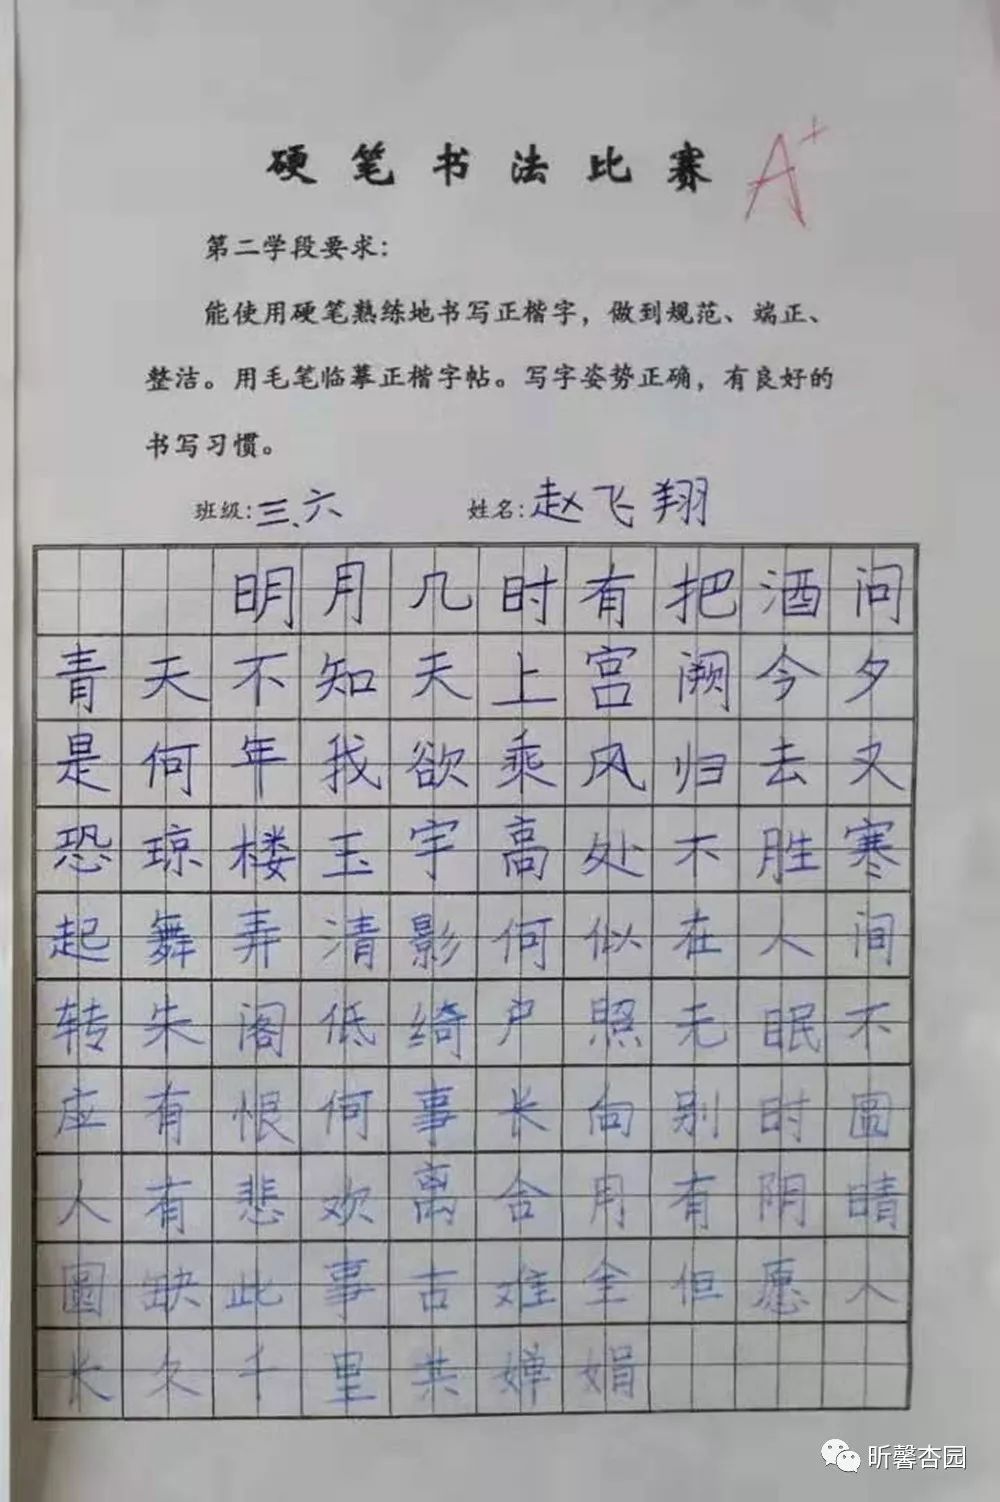 硬笔书法比赛 A+
第二学段要求：
能使用硬笔熟练地书写正楷字，做到规范、端正、
整洁。用毛笔临摹正楷字帖。写字姿势正确，有良好的
书写习惯。
班级：三、六 姓名：赵飞翔
明月几时有把酒问
青天不知天上宫阙今夕
是何年我欲乘风归去又
恐琼楼玉宇高处不胜寒
起舞弄清影何似在人间
转朱阁低绮户照无眠不
应有恨何事长向别时圆
人有悲欢离合月有阴晴
圆缺此事古难全但愿人
长久千里共婵娟
昕馨杏园